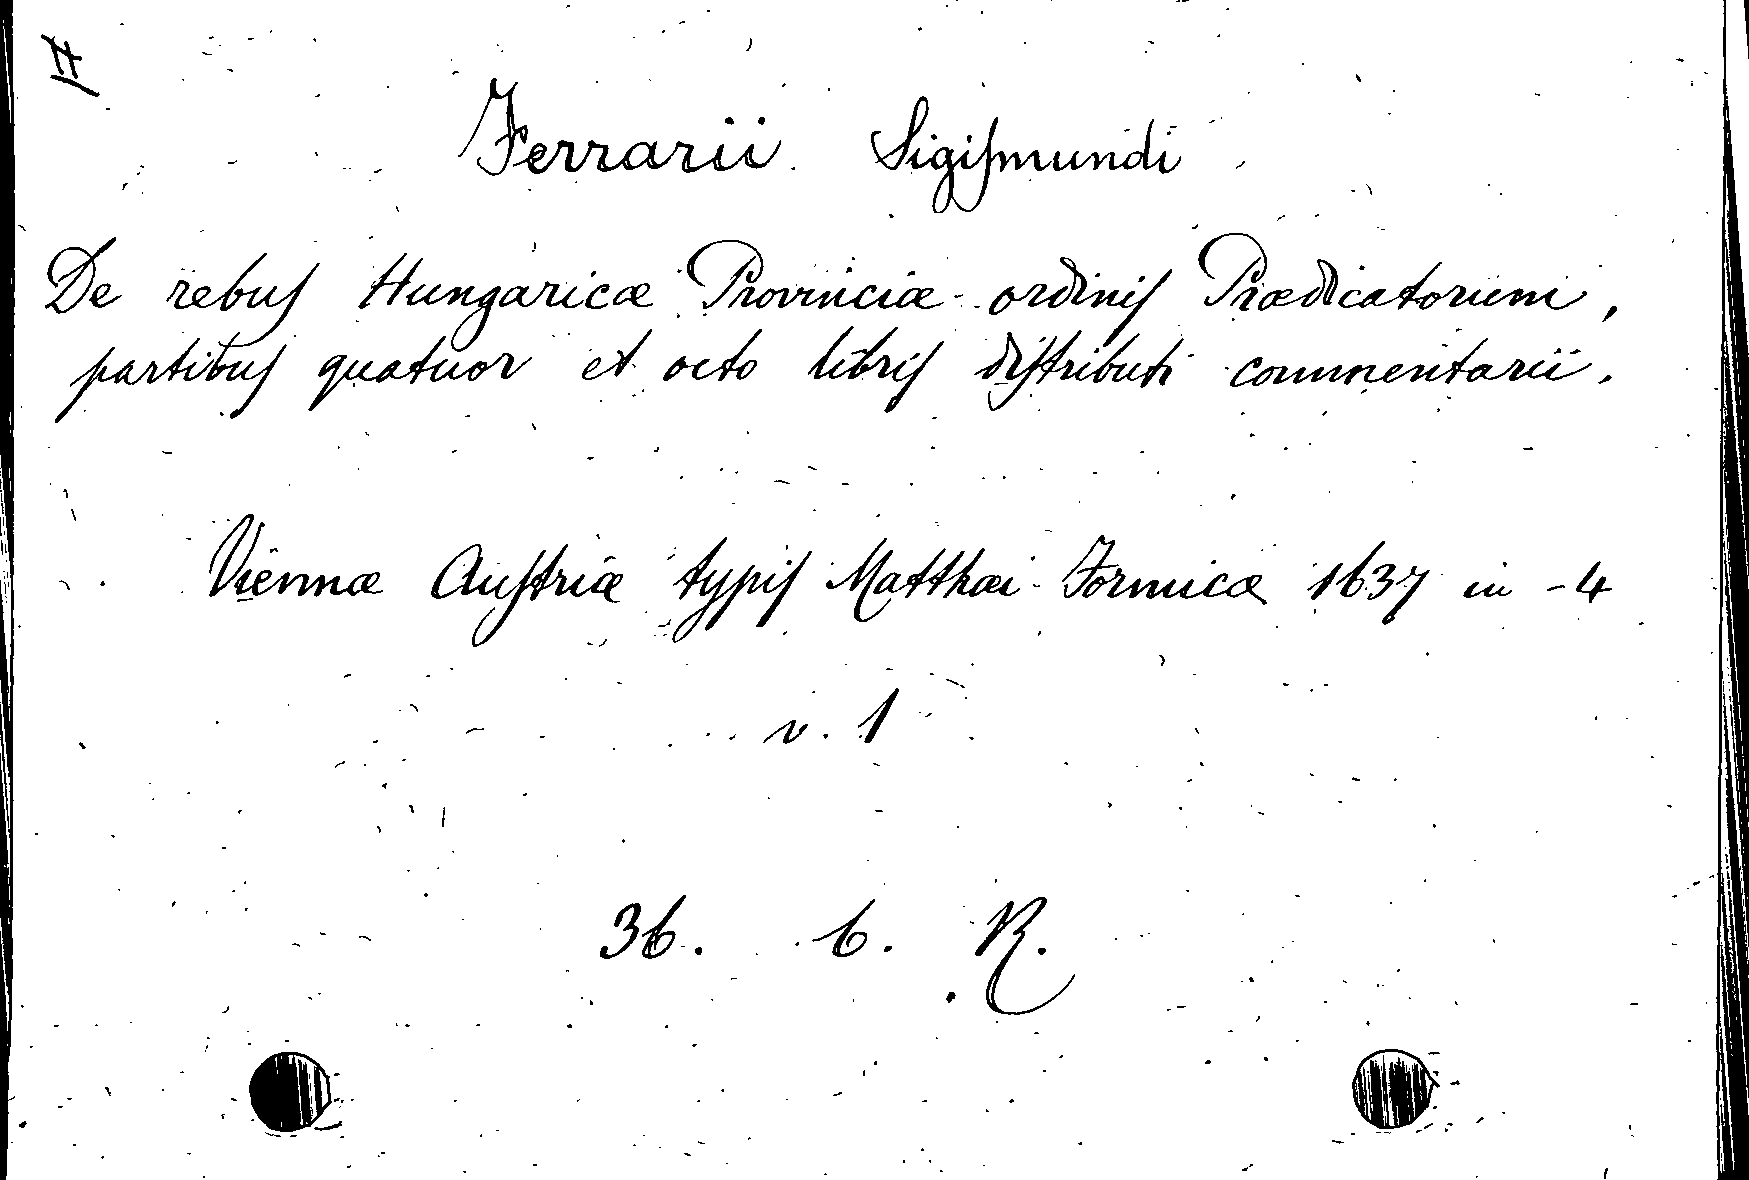 Ferrarii Sigismundi
De rebus Hungaricæ Provinciæ ordinis Prædicatorum,
partibus quatuor et octo libris distributi commentarii.
Viennæ Austriæ typis Matthæi Formicæ 1637 in-4
v. 1
36. b. R.